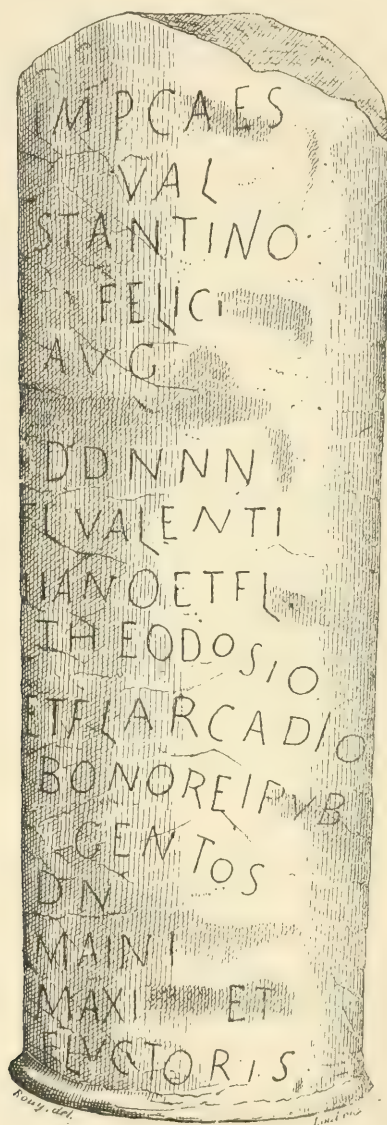 IMPCAES
VAL
STANTINO
FELICI
AVG
DDNNN
FLVALENTI
NIANOETFL
THEODOSIO
ETFLARCADIO
BONOREIPVB
GENTOS
DN
MAINI
MAXI ET
FLVCTORIS